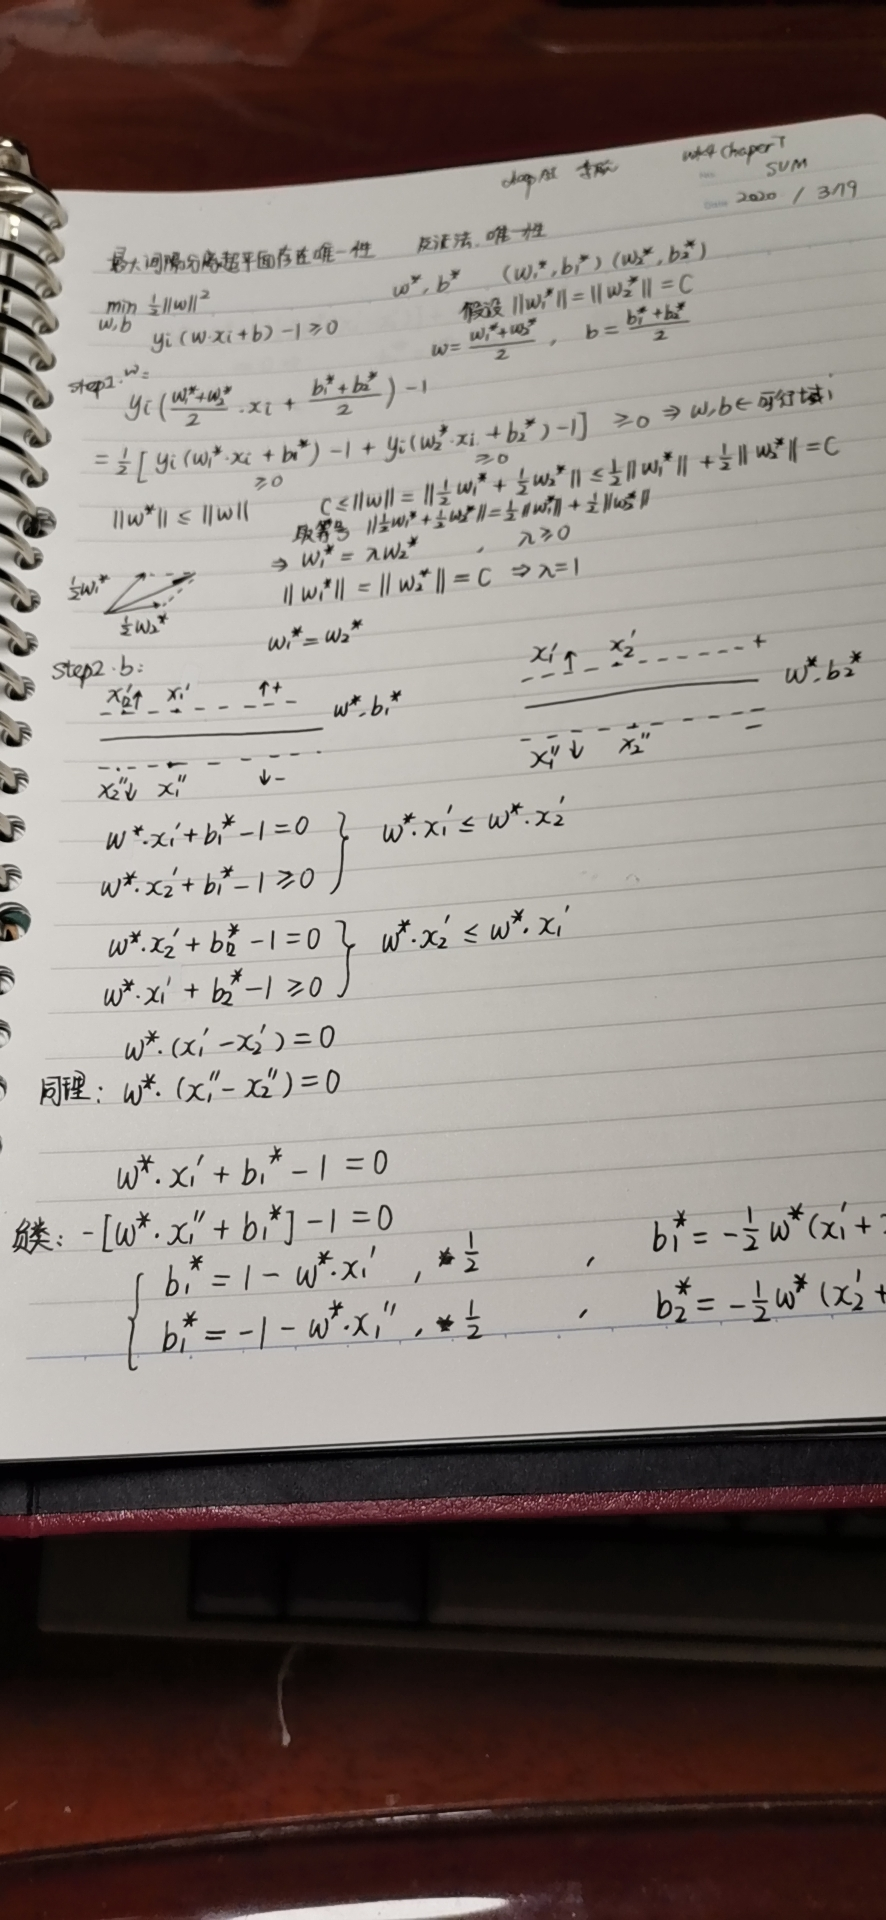 wk4 Chaper7
SVM
2020 / 3/19
最大间隔分离超平面存在唯一性 反证法. 唯一性
w*, b* (w₁*, b₁*) (w₂*, b₂*)
min 1/2||w||²
w,b
假设 ||w₁*|| = ||w₂*|| = C
yi (w·xi+b) -1 ≥ 0
w = (w₁*+w₂*)/2 , b = (b₁*+b₂*)/2
step1. w:
yi( (w₁*+w₂*)/2 · xi + (b₁*+b₂*)/2 ) -1
= 1/2 [ yi(w₁*·xi + b₁*) -1 + yi(w₂*·xi + b₂*) -1 ] ≥0 ⇒ w,b ∈ 可行域;
≥0 ≥0
||w*|| ≤ ||w|| C ≤ ||w|| = ||1/2 w₁* + 1/2 w₂*|| ≤ 1/2||w₁*|| + 1/2||w₂*|| = C
取等号 ||1/2 w₁* + 1/2 w₂*|| = 1/2||w₁*|| + 1/2||w₂*||
⇒ w₁* = λw₂* , λ≥0
1/2 w₁*
|| w₁*|| = || w₂*|| = C ⇒ λ=1
1/2 w₂*
w₁* = w₂*
step2. b:
x₂'↑ x₁' ↑+ w*·b₁*
x₁'↑ x₂' + w*·b₂*
x₂''↓ x₁'' ↓-
x₁''↓ x₂'' -
w*·x₁' + b₁* -1 = 0 } w*·x₁' ≤ w*·x₂'
w*·x₂' + b₁* -1 ≥ 0
w*·x₂' + b₂* -1 = 0 } w*·x₂' ≤ w*·x₁'
w*·x₁' + b₂* -1 ≥ 0
w*·(x₁' - x₂') = 0
同理: w*·(x₁'' - x₂'') = 0
w*·x₁' + b₁* -1 = 0
负类: -[w*·x₁'' + b₁*] -1 = 0
{ b₁* = 1 - w*·x₁' , * 1/2 , b₁* = -1/2 w*(x₁' +
b₁* = -1 - w*·x₁'' , * 1/2 , b₂* = -1/2 w*(x₂' +